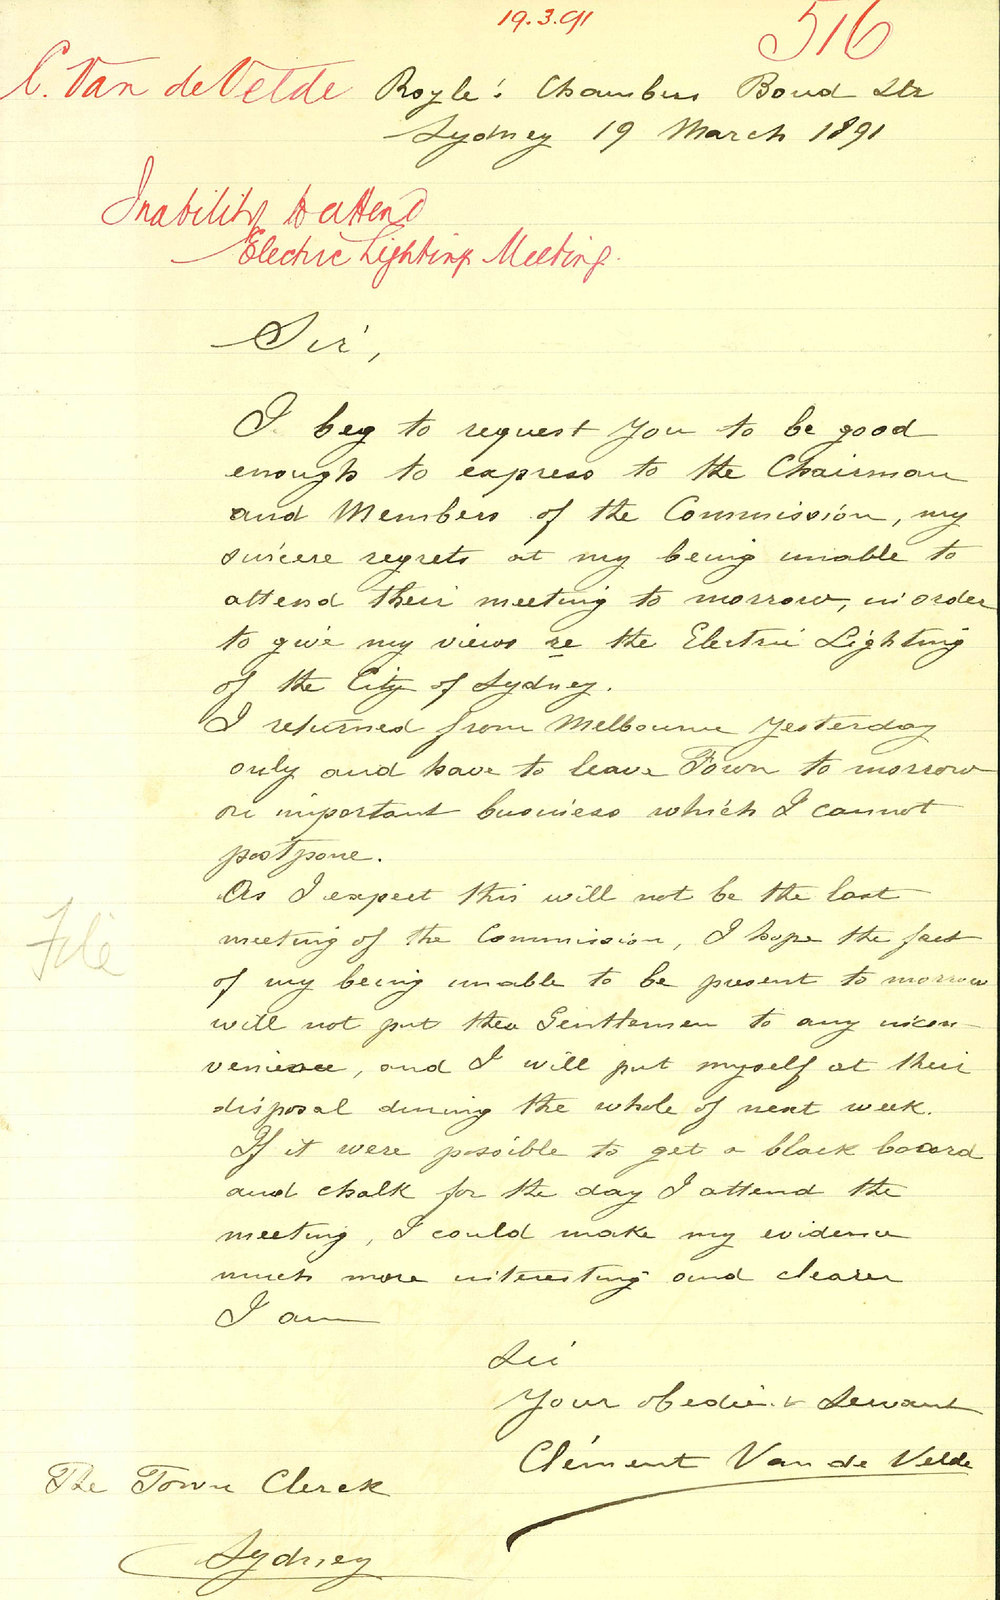 19.3.91
516
C. Van de Velde
Royle's Chambers Bond Str
Sydney 19 March 1891
Inability to attend
Electric Lighting Meeting.
Sir,
I beg to request you to be good
enough to express to the Chairman
and Members of the Commission, my
sincere regrets at my being unable to
attend their meeting to morrow, in order
to give my views re the Electric Lighting
of the City of Sydney.
I returned from Melbourne yesterday
only and have to leave Town to morrow
on important business which I cannot
postpone.
As I expect this will not be the last
meeting of the Commission, I hope the fact
of my being unable to be present to morrow
will not put the Gentlemen to any incon-
venience, and I will put myself at their
disposal during the whole of next week.
If it were possible to get a black board
and chalk for the day I attend the
meeting, I could make my evidence
much more interesting and clearer
I am
Sir
Your obedient Servant
Clément Van de Velde
The Town Clerck
Sydney
File